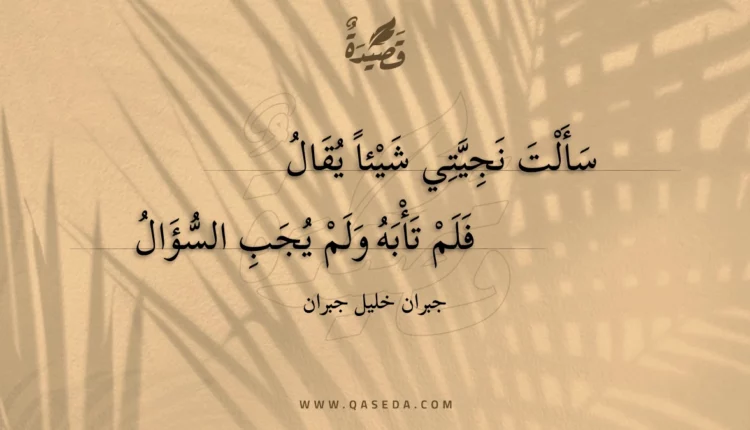 قَصِيْدَةٌ
سَأَلْتَ نَجِيَّتِي شَيْئاً يُقَالُ
فَلَمْ تَأْبَهُ وَلَمْ يُجَبِ السُّؤَالُ
جبران خليل جبران
WWW.QASEDA.COM